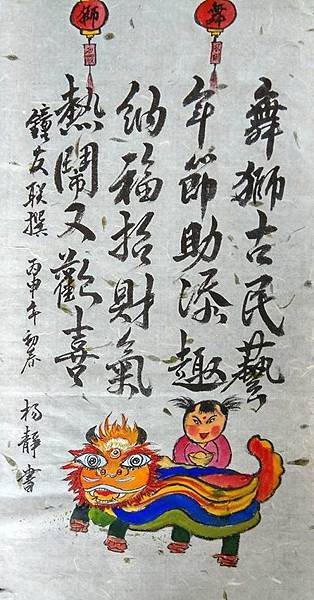 舞獅
舞獅古民藝
年節助添趣
納福招財氣
熱鬧又歡喜
鐘友联撰 丙申年初春 杨靜書